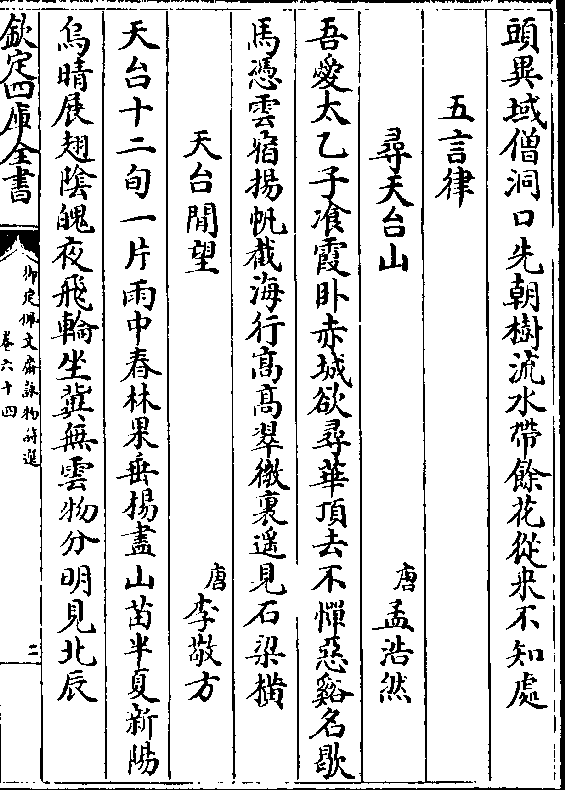 頭異域僧洞口先朝樹流水帶餘花從來不知處
五言律
尋天台山　唐孟浩然
吾愛太乙子飡霞卧赤城欲尋華頂去不憚惡谿名歇
馬憑雲宿揚帆截海行高高翠微裏遥見石梁横
天台閒望　唐李敬方
天台十二旬一片雨中春林果垂揚盡山苗半夏新陽
烏晴展翅陰魄夜飛輪坐冀無雲物分明見北辰
欽定四庫全書
御定佩文齋詠物詩選
卷六十四
二